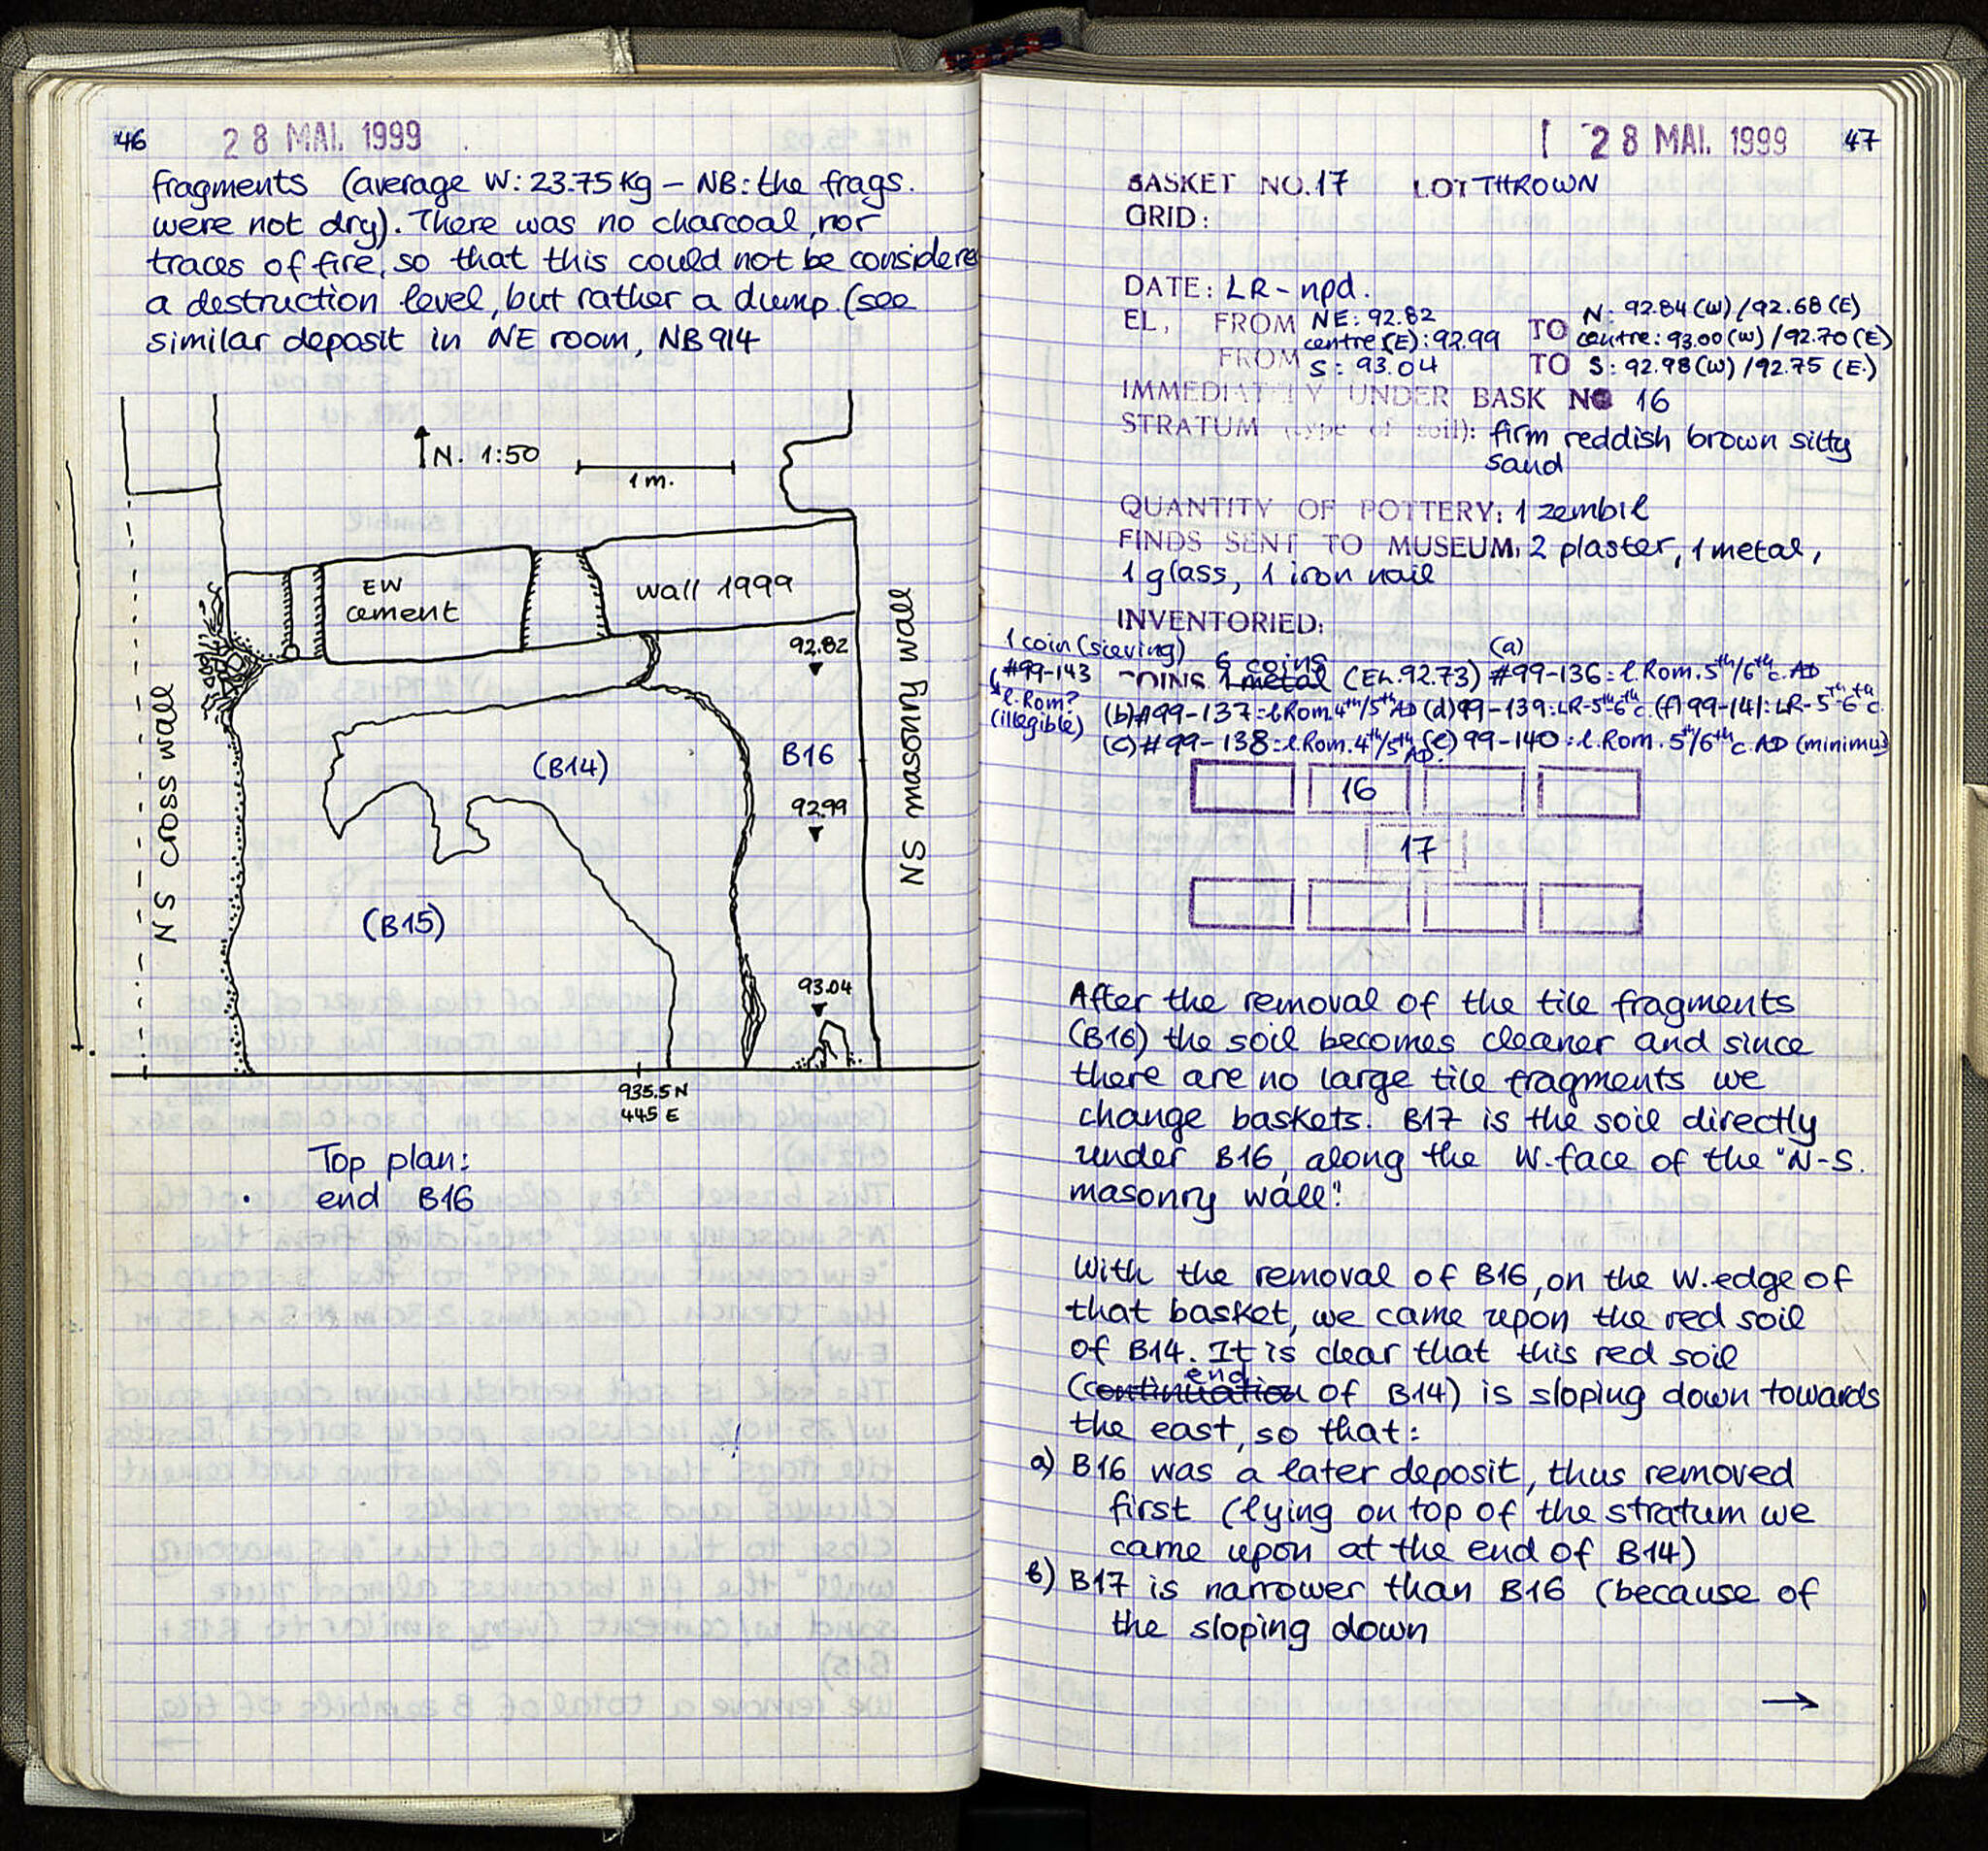 46 28 MAI. 1999
fragments (average W: 23.75 Kg – NB: the frags.
were not dry). There was no charcoal, nor
traces of fire, so that this could not be considered
a destruction level, but rather a dump. (see
similar deposit in NE room, NB 914
N. 1:50
1 m.
EW
cement
wall 1999
92.82
NS cross wall
NS masonry wall
(B14)
B16
92.99
(B15)
93.04
935.5 N
445 E
Top plan:
end B16
28 MAI. 1999 47
BASKET NO. 17 LOT THROWN
GRID:
DATE: LR - npd.
EL, FROM NE: 92.82 TO N: 92.84 (W) / 92.68 (E)
centre (E): 92.99 centre: 93.00 (W) / 92.70 (E)
FROM S: 93.04 TO S: 92.98 (W) / 92.75 (E.)
IMMEDIATELY UNDER BASK NO 16
STRATUM (type of soil): firm reddish brown silty
sand
QUANTITY OF POTTERY: 1 zembil
FINDS SENT TO MUSEUM: 2 plaster, 1 metal,
1 glass, 1 iron nail
INVENTORIED:
1 coin (sieving)
(#99-143
l. Rom?
(illegible)
COINS 1 metal 6 coins (EL. 92.73) (a) #99-136: l. Rom. 5th/6th c. AD
(b) #99-137 = l. Rom. 4th/5th AD (d) 99-139: LR-5th-6th c. (f) 99-141: LR-5th-6th c.
(c) #99-138 = l. Rom. 4th/5th AD. (e) 99-140: l. Rom. 5th/6th c. AD (minimus)
16
17
After the removal of the tile fragments
(B16) the soil becomes cleaner and since
there are no large tile fragments we
change baskets. B17 is the soil directly
under B16, along the W. face of the "N-S.
masonry wall".
With the removal of B16, on the W. edge of
that basket, we came upon the red soil
of B14. It is clear that this red soil
(continuation end of B14) is sloping down towards
the east, so that:
a) B16 was a later deposit, thus removed
first (lying on top of the stratum we
came upon at the end of B14)
b) B17 is narrower than B16 (because of
the sloping down
→